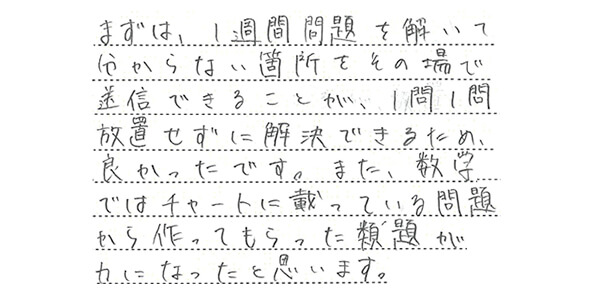 まずは、1週間問題を解いて
分からない箇所をその場で
送信できることが、1問1問
放置せずに解決できるため、
良かったです。また、数学
ではチャートに載っている問題
から作ってもらった類題が
力になったと思います。